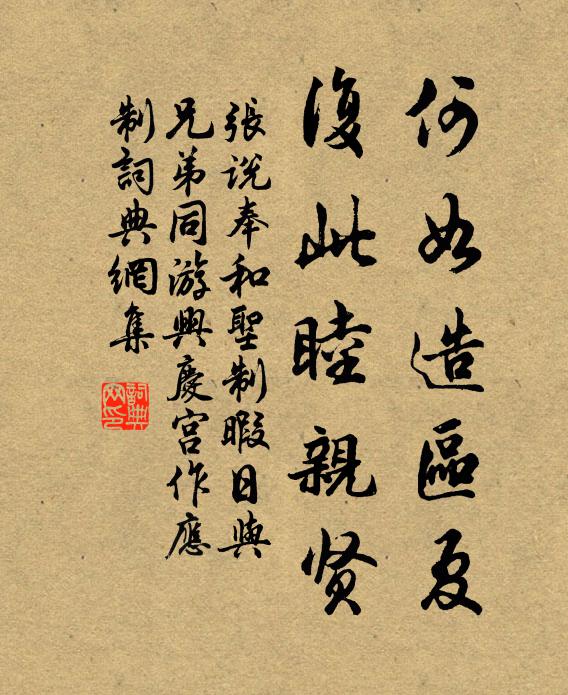 何如造區夏
復此睦親賢
張說奉和聖制暇日與
兄弟同游興慶宮作應
制詞典網集
詞典网印